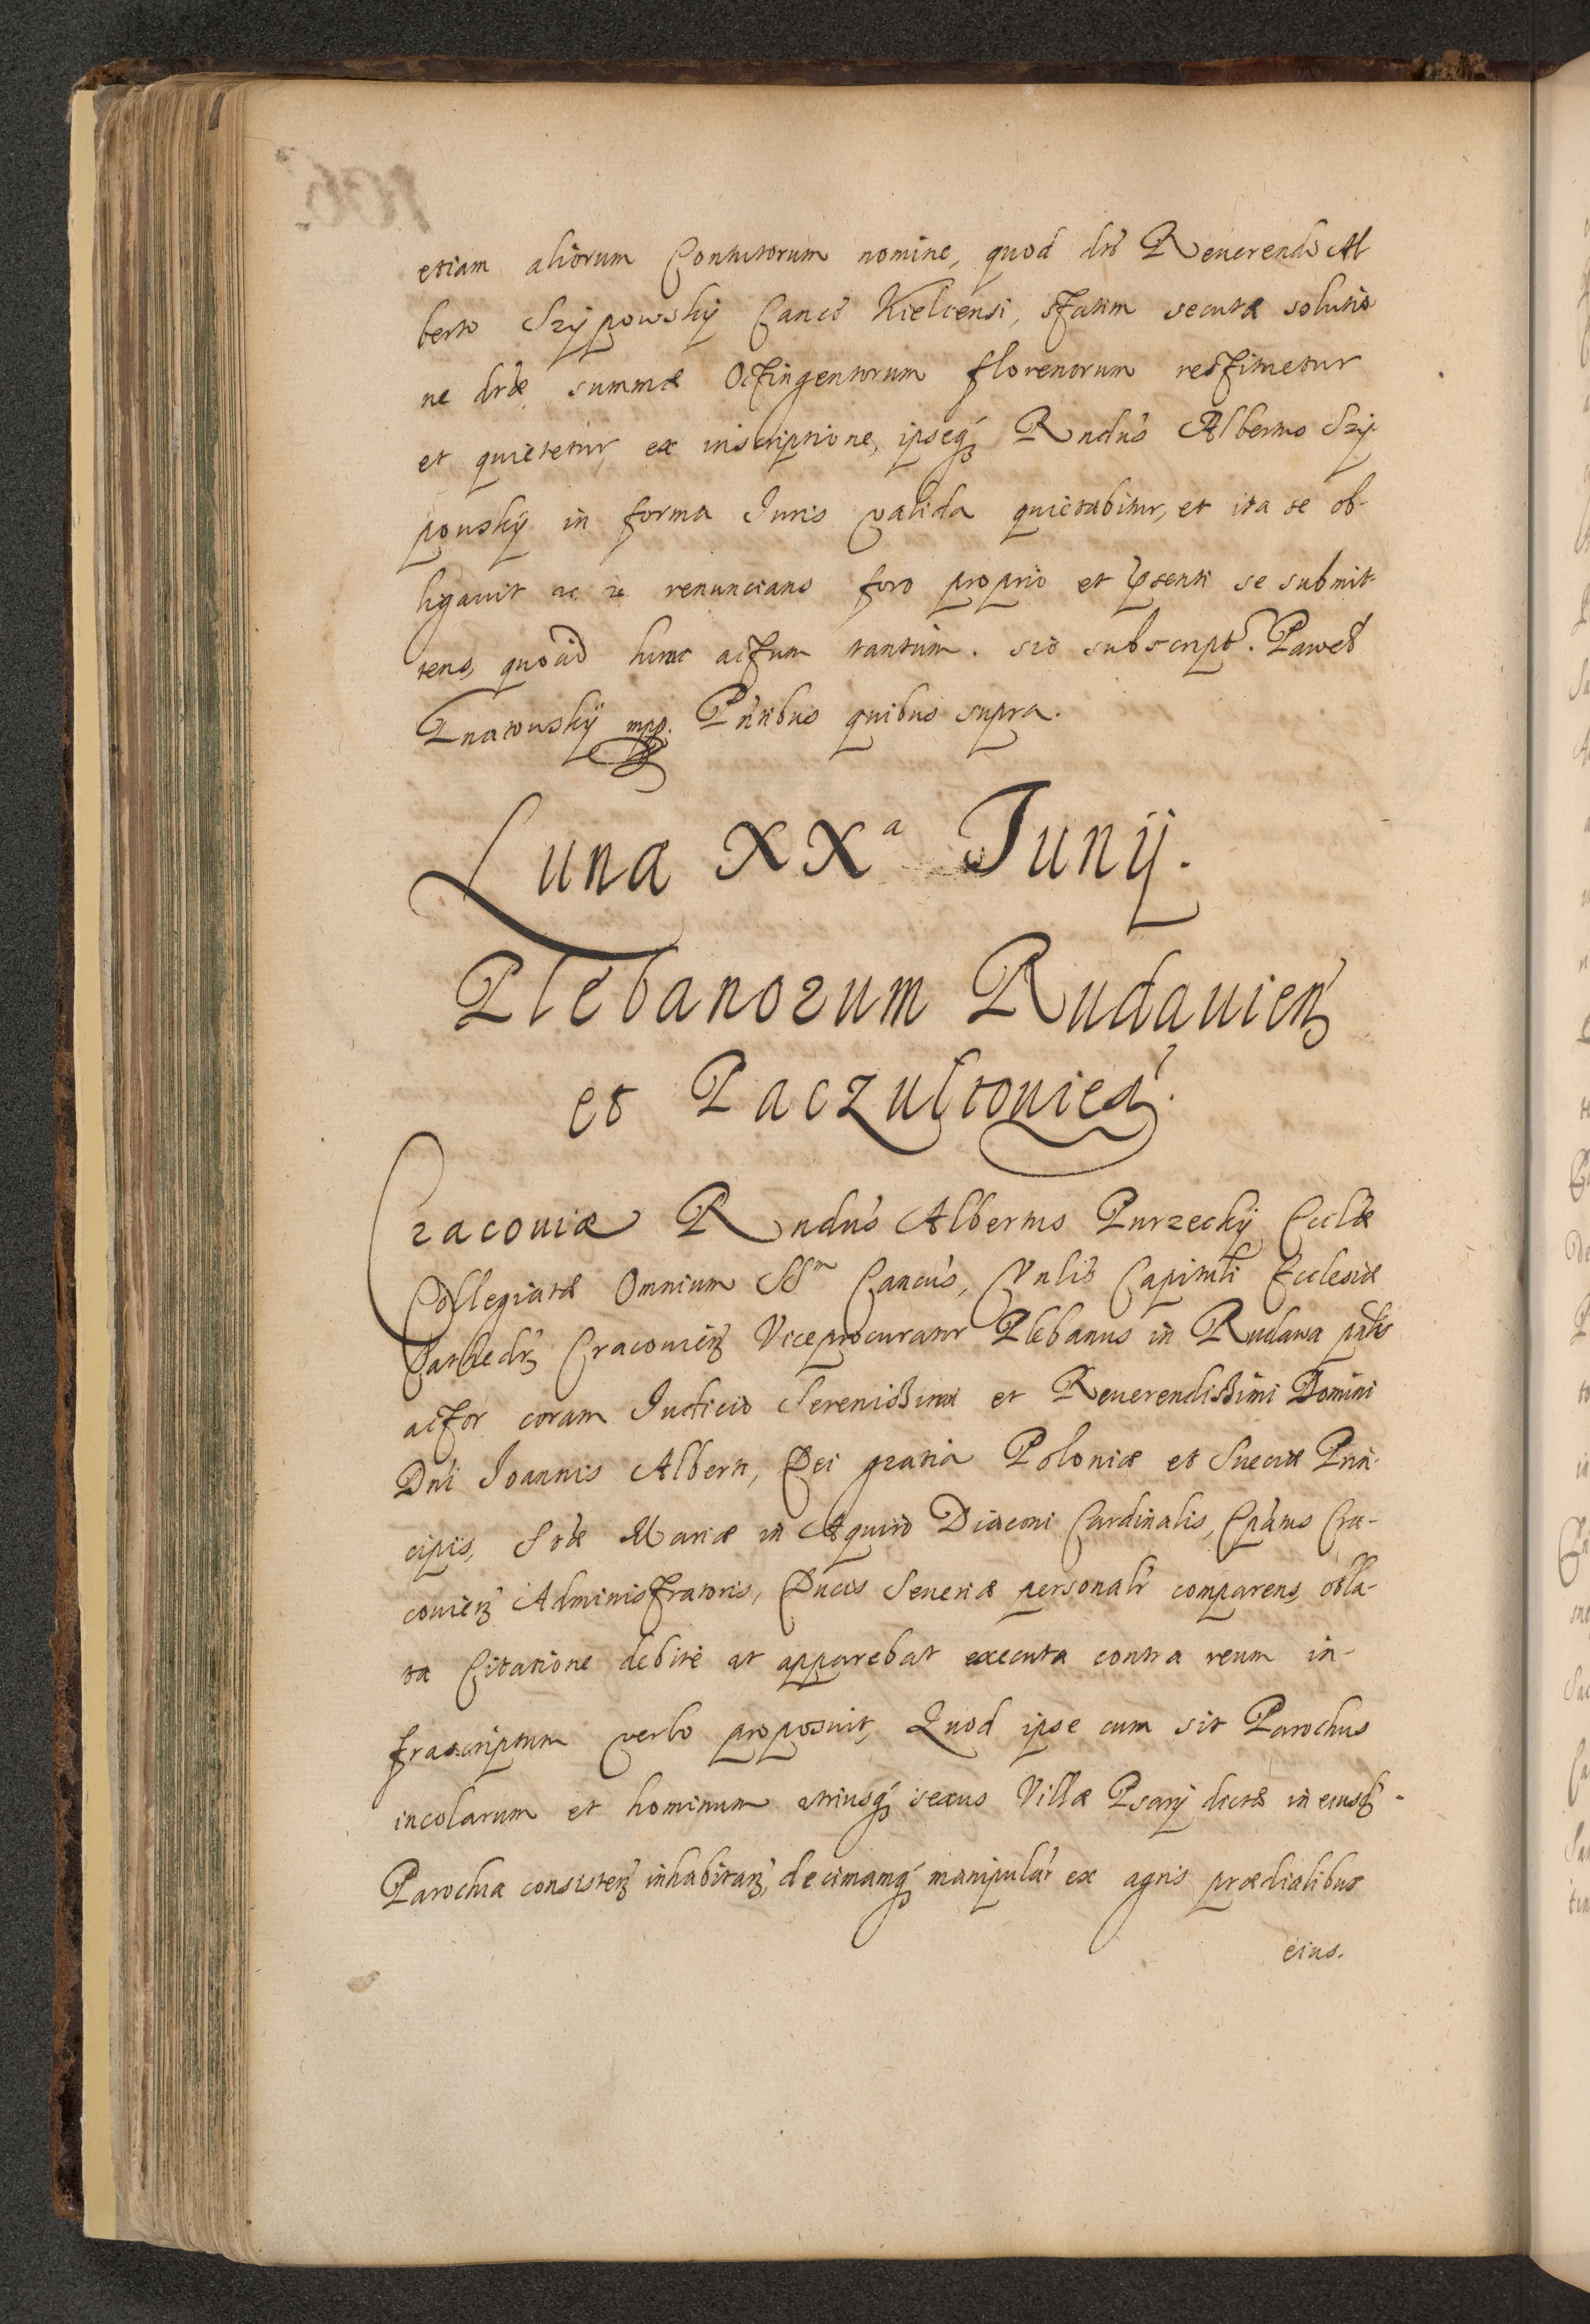 etiam aliorum Contutorum nomine, quod dño Reuerendo Al
berto Szÿpowskÿ Canco Kielcensi, statim secuta solutio
ne dictæ summæ Octingentorum florenorum restituetur
et quietetur ex inscriptione, ipseq́ Rndus Albertus Szÿ
pouskÿ in forma Iuris valida quietabitur, et ita se ob-
ligauit ac renuncians foro proprio et pñsenti se submit
tens, quoad hunc actum tantum. sic subscript. Paweł
Gnatouskÿ mpp. Pñtibus quibus supra.
Lunæ XXa Junij.
Plebanorum Rudauień
et Paczultouień.
Cracouiæ Rndus Albertus Purzeckÿ Ecclæ
Collegiatæ Omnium SSm Cancus, Vnlis Capituli Ecclesiæ
Cathedr Cracouień Viceprocurator Plebanus in Rudawa pñlis
actor coram Iudicio Serenissimi et Reuerendissimi Domini
Dni Ioannis Alberti, Dei gratia Poloniæ et Sueciæ Prin-
cipis, Sctæ Mariæ in Aquiro Diaconi Cardinalis, Epatus Cra-
couień Administratoris, Ducis Seueriæ personalr comparens, obla-
ta Citatione debite ut apparebat executa contra reum in-
frascriptum verbo proposuit, Quod ipse cum sit Parochus
incolarum et hominum vtriusq́ sexus Villæ Psarÿ dictæ in eiusd
Parochia consisteñ inhabitań, decimamq́ manipulár ex agris prædialibus
eius.